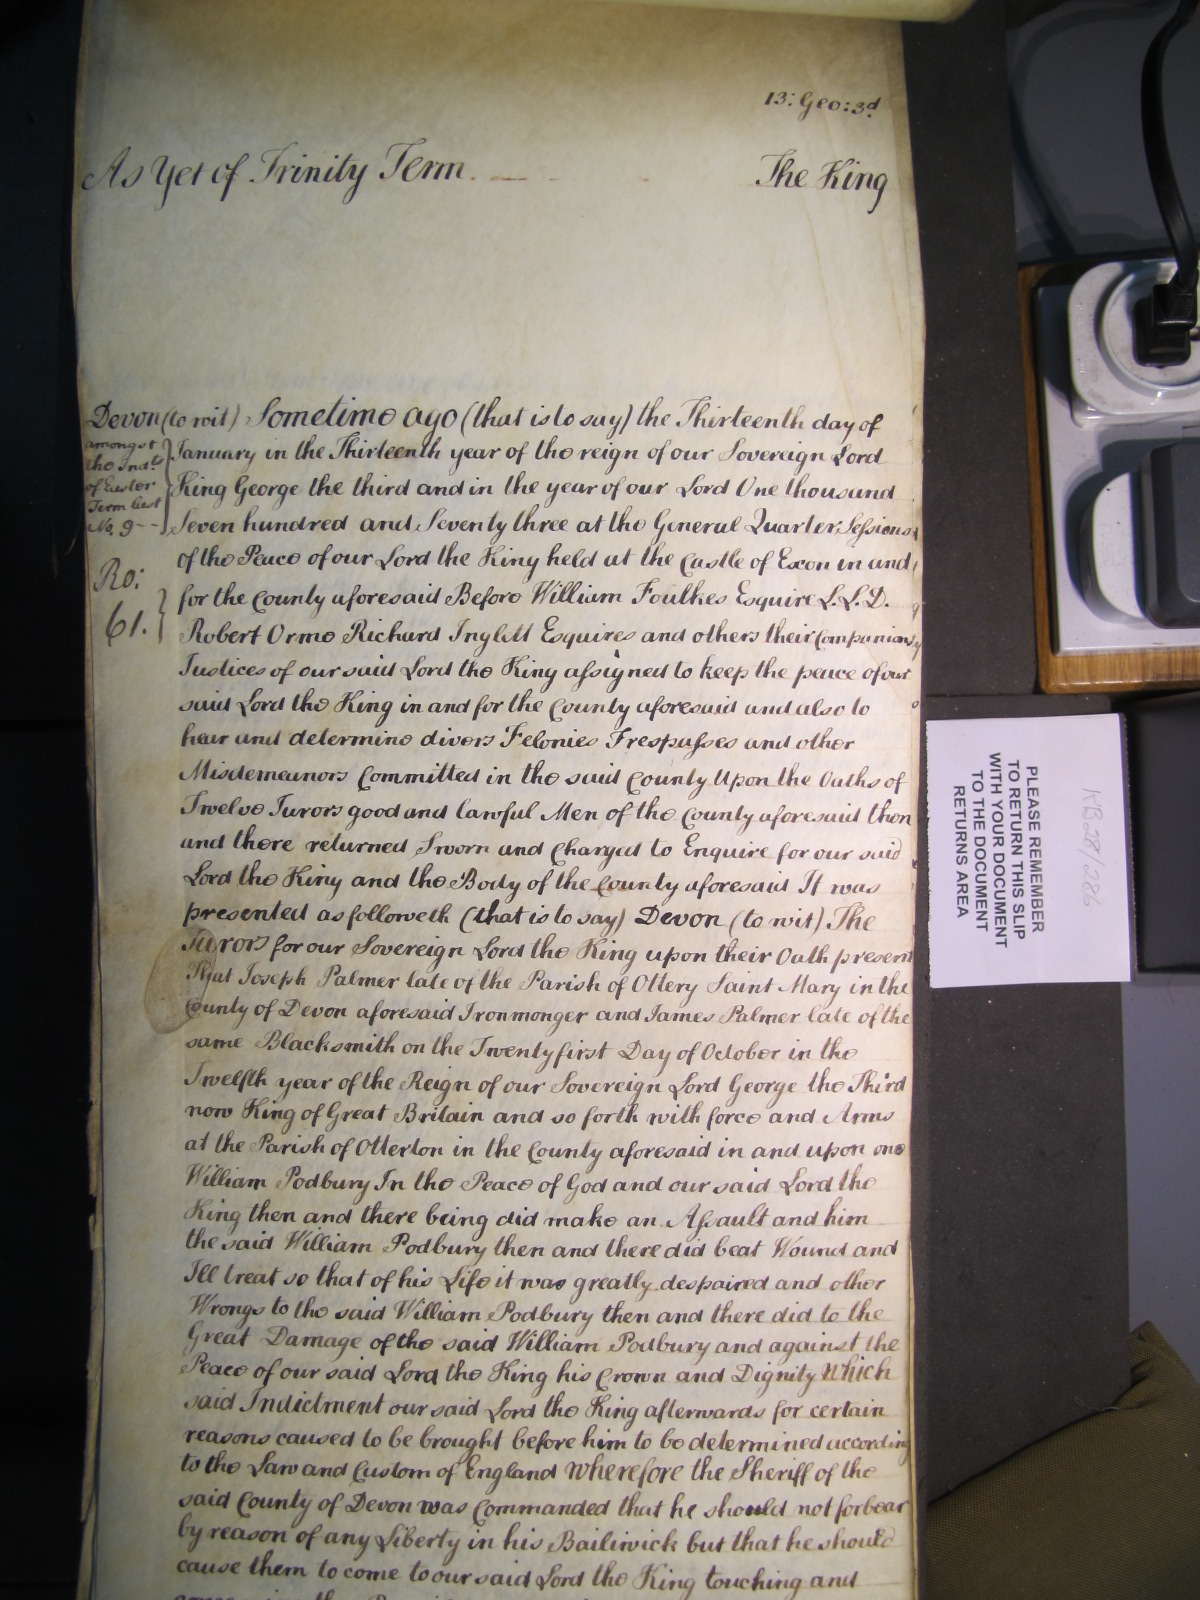 13: Geo: 3d
As Yet of Trinity Term The King
Devon (to wit) Sometime ago (that is to say) the Thirteenth day of
amongst
the Indts
of Easter
Term last
No. 9
Ro:
61.
January in the Thirteenth year of the reign of our Sovereign Lord
King George the third and in the year of our Lord One thousand
Seven hundred and Seventy three at the General Quarter Sessions
of the Peace of our Lord the King held at the Castle of Exon in and
for the County aforesaid Before William Foulkes Esquire L.L.D.
Robert Orme Richard Inglett Esquires and others their Companions
Justices of our said Lord the King assigned to keep the peace of our
said Lord the King in and for the County aforesaid and also to
hear and determine divers Felonies Trespasses and other
Misdemeanors Committed in the said County Upon the Oaths of
Twelve Jurors good and lawful Men of the County aforesaid then
and there returned Sworn and Charged to Enquire for our said
Lord the King and the Body of the County aforesaid It was
presented as followeth (that is to say) Devon (to wit) The
Jurors for our Sovereign Lord the King upon their Oath present
That Joseph Palmer late of the Parish of Ottery Saint Mary in the
County of Devon aforesaid Ironmonger and James Palmer late of the
same Blacksmith on the Twenty first Day of October in the
Twelfth year of the Reign of our Sovereign Lord George the Third
now King of Great Britain and so forth with force and Arms
at the Parish of Otterton in the County aforesaid in and upon one
William Podbury In the Peace of God and our said Lord the
King then and there being did make an Assault and him
the said William Podbury then and there did beat Wound and
Ill treat so that of his Life it was greatly despaired and other
Wrongs to the said William Podbury then and there did to the
Great Damage of the said William Podbury and against the
Peace of our said Lord the King his Crown and Dignity Which
said Indictment our said Lord the King afterwards for certain
reasons caused to be brought before him to be determined according
to the Law and Custom of England Wherefore the Sheriff of the
said County of Devon was Commanded that he should not forbear
by reason of any Liberty in his Bailiwick but that he should
cause them to come to our said Lord the King touching and
PLEASE REMEMBER
TO RETURN THIS SLIP
WITH YOUR DOCUMENT
TO THE DOCUMENT
RETURNS AREA
KB28/286